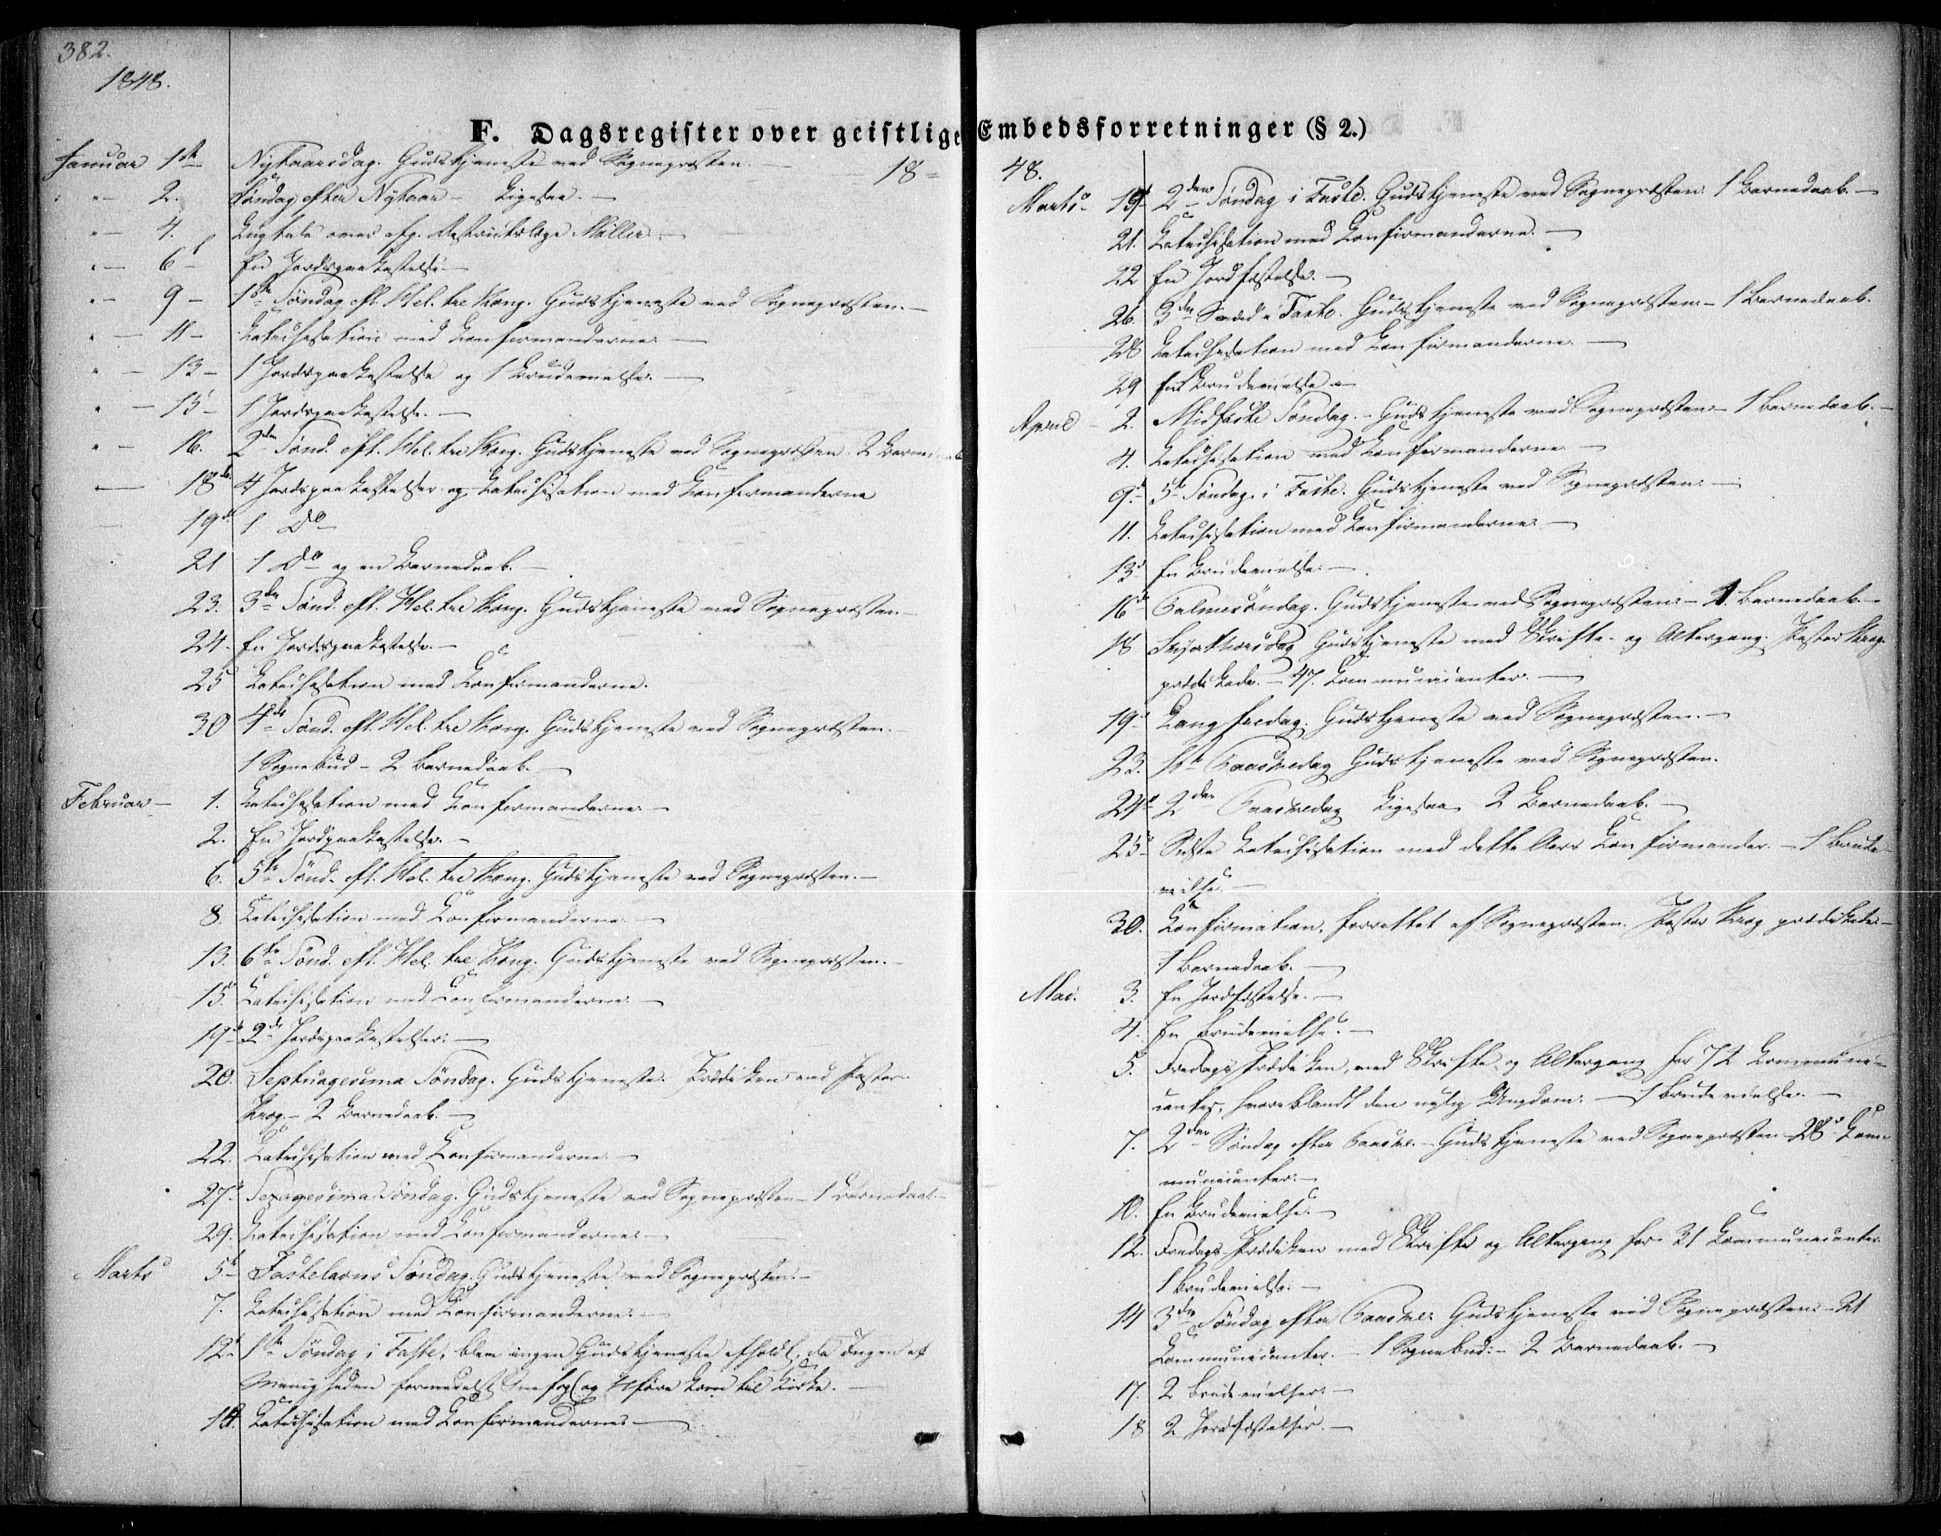 382.
1848.
F. Dagsregister over geistlige Embedsforretninger (§ 2.)
18 - 48.
Januar 1ste Nytaarsdag. Gudstjeneste ved Sognepræsten. -
" - 2. Søndag efter Nytaar - Ligesaa. -
" - 4. Ligtale over afg. Districtslæge Møller. -
" - 6 - En Jordpaakastelse. -
" - 9 - 1ste Søndag eft. Hel. tre Kong. Gudstjeneste ved Sognepræsten. -
" - 11 - Catechisation med Confirmanderne. -
" - 13 - 1 Jordspaakastelse og 1 Brudevielse. -
" - 15 - 1 Jordspaakastelse. -
" - 16. 2den Sønd. eft. Hel. tre Kong. Gudstjeneste ved Sognepræsten. 2 Barnedaab
- 18de 4 Jordspaakastelser og Catechisation med Confirmanderne
19de 1 Do
21 1 Do og en Barnedaab. -
23. 3die Sønd. eft. Hel. tre Kong. Gudstjeneste ved Sognepræsten. -
24. En Jordspaakastelse. -
25 Catechisation med Confirmanderne.
30 4de Sønd. eft. Hel. tre Kong. Gudstjeneste ved Sognepræsten. -
1 Sognebud - 2 Barnedaab. -
Februar - 1. Catechisation med Confirmanderne. -
2. En Jordpaakastelse. -
6. 5te Sønd. eft. Hel. tre Kong. Gudstjeneste ved Sognepræsten. -
8 Catechisation med Confirmanderne. -
13. 6te Sønd. eft. Hel. tre Kong. Gudstjeneste ved Sognepræsten. -
15. Catechisation med Confirmanderne. -
19de 2de Jordspaakastelser. -
20. Septuagesima Søndag. Gudstjeneste. Prædiken ved Pastor
Krog. - 2 Barnedaab. -
22. Catechisation med Confirmanderne. -
27. Sexagesima Søndag. Gudstjeneste ved Sognepræsten - 1 Barnedaab -
29. Catechisation med Confirmanderne. -
Marts 5te Fastelavns Søndag. Gudstjeneste ved Sognepræsten. -
7. Catechisation med Confirmanderne. -
12. 1ste Søndag i Faste, blev ingen Gudstjeneste afholdt, da Ingen af
Menigheden formedelst Snefog og Uføre kom til Kirke. -
14. Catechisation med Confirmanderne -
Marts 19 2den Søndag i Faste. Gudstjeneste ved Sognepræsten. 1 Barnedaab. -
21. Catechisation med Confirmanderne. -
22 En Jordfæstelse. -
26. 3die Sønd i Faste. Gudstjeneste ved Sognepræsten - 1 Barnedaab.
28 Catechisation med Confirmanderne. -
29 En Brudevielse -
April - 2. Midfaste Søndag. - Gudstjeneste ved Sognepræsten - 1 Barnedaab. -
4. Catechisation med Confirmanderne -
9. 5te Søndag i Faste. Gudstjeneste ved Sognepræsten. -
11. Catechisation med Confirmanderne. -
13. En Brudevielse. -
16 Palmesøndag. Gudstjeneste ved Sognepræsten. - 1. Barnedaab. -
18 Skjærthorsdag Gudstjeneste med Skrifte- og Altergang. Pastor Krog
prædikede. - 47. Communicanter. -
19 - Langfredag. Gudstjeneste ved Sognepræsten. -
23. 1ste Paaskedag Gudstjeneste ved Sognepræsten.
24 2den Paaskedag Ligesaa 2 Barnedaab. -
25 Sidste Catechisation med dette Aars Confirmander. - 1 Brude-
vielse. -
30. Confirmation, forrettet af Sognepræsten. Pastor Krog prædikede. -
1 Barnedaab. -
Mai. 3. En Jordfæstelse. -
4. En Brudevielse. -
5. Fredags Prædiken, med Skrifte og Altergang for 72 Communi-
canter, hvoriblandt den nylig Ungdom. - 1 Brudevielse. -
7. 2den Søndag efter Paaske. - Gudstjeneste ved Sognepræsten - 28 Com-
municanter. -
10. En Brudevielse. -
12. Fredags Prædiken med Skrifte og Altergang for 31 Communicanter
1 Brudevielse. -
14 3die Søndag efter Paaske. Gudstjeneste ved Sognepræsten - 21
Communicanter. - 1 Sognebud. - 2 Barnedaab. -
17. 2 Brudevielser. -
18 2 Jordfæstelser. -